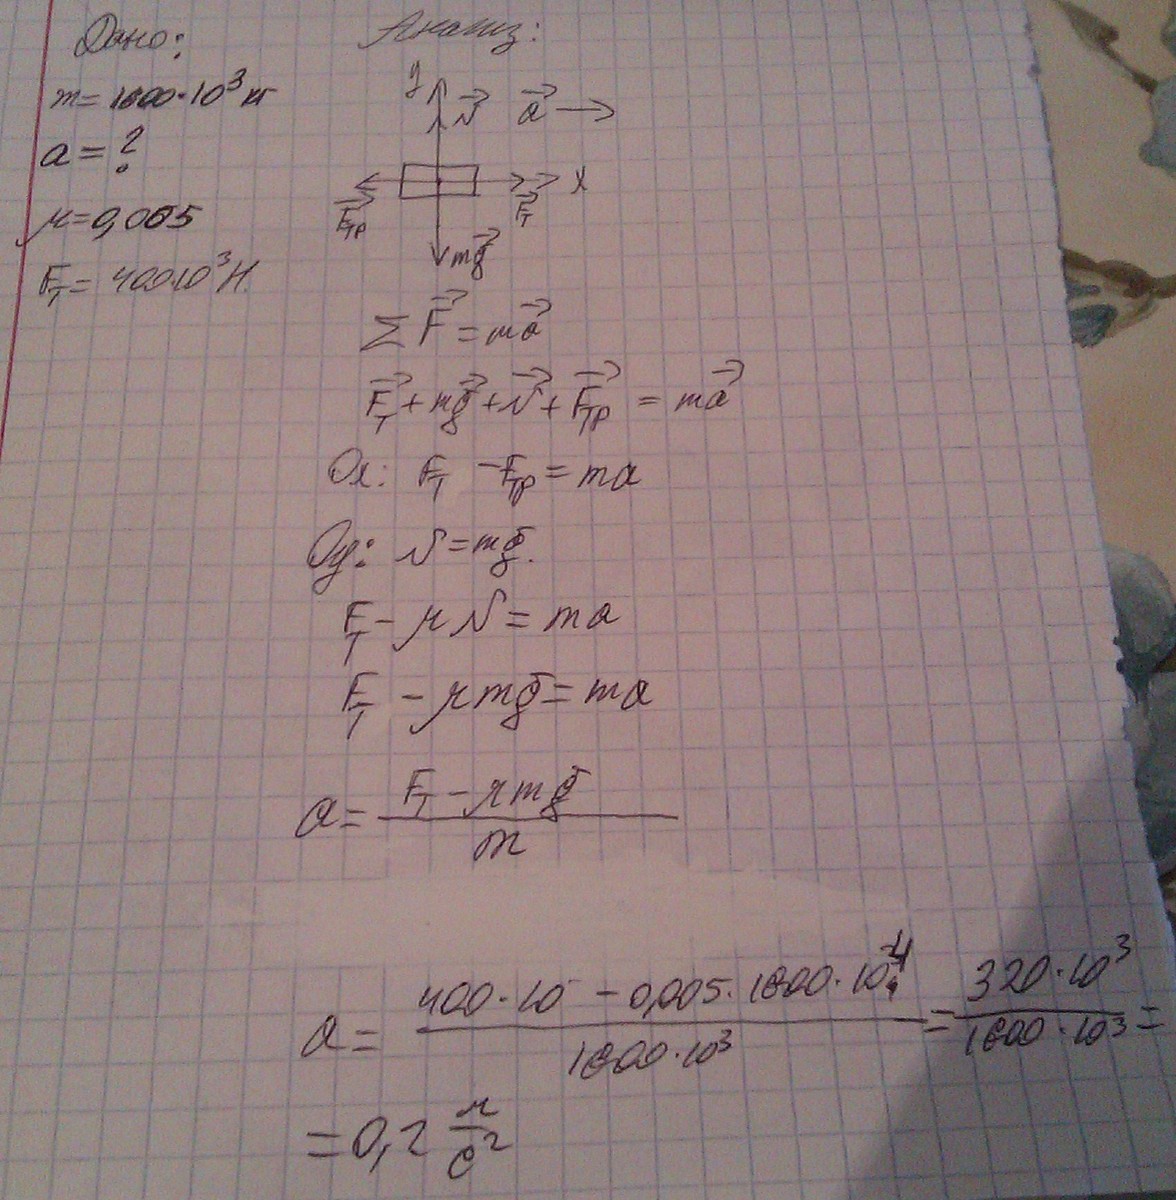 Дано:
m=1600·10³ кг
a = ?
μ=0,005
Fт= 400·10³ Н.
Анализ:
y N⃗ a⃗
X
F⃗тр F⃗т
mg⃗
Σ F⃗ = ma⃗
F⃗т + mg⃗ + N⃗ + F⃗тр = ma⃗
Ox: Fт - Fтр = ma
Oy: N = mg.
Fт - μN = ma
Fт - μmg = ma
a = (Fт - μmg) / m
a = (400·10 - 0,005·1600·10⁴) / (1600·10³) = (320·10³) / (1600·10³) =
= 0,2 м/с²